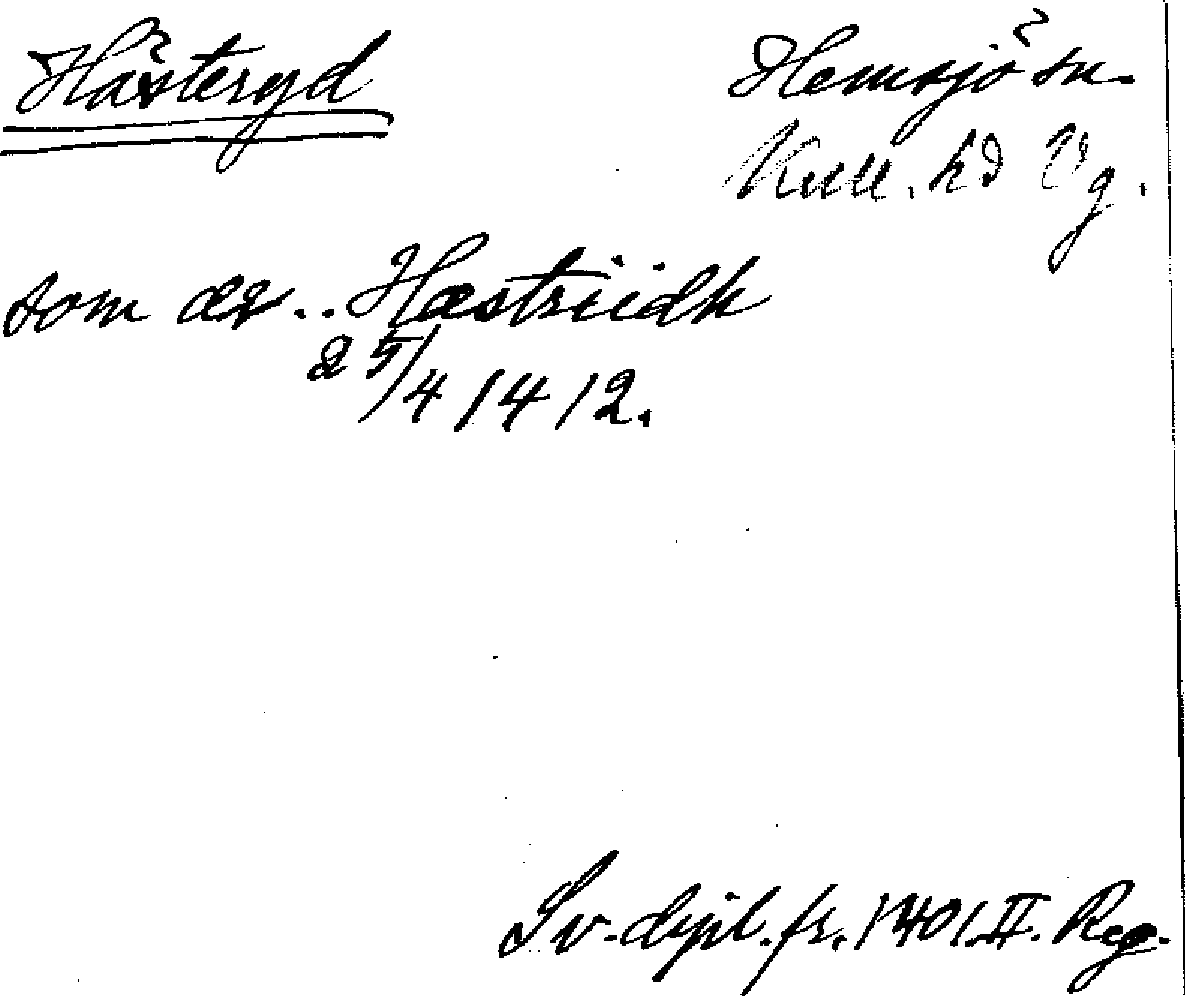 Hästeryd
Hemsjö sn.
Kull. hd Vg.
som ær .. Hæstriidh
25/4 1412.
Sv. dipl. fr. 1401. II. Reg.